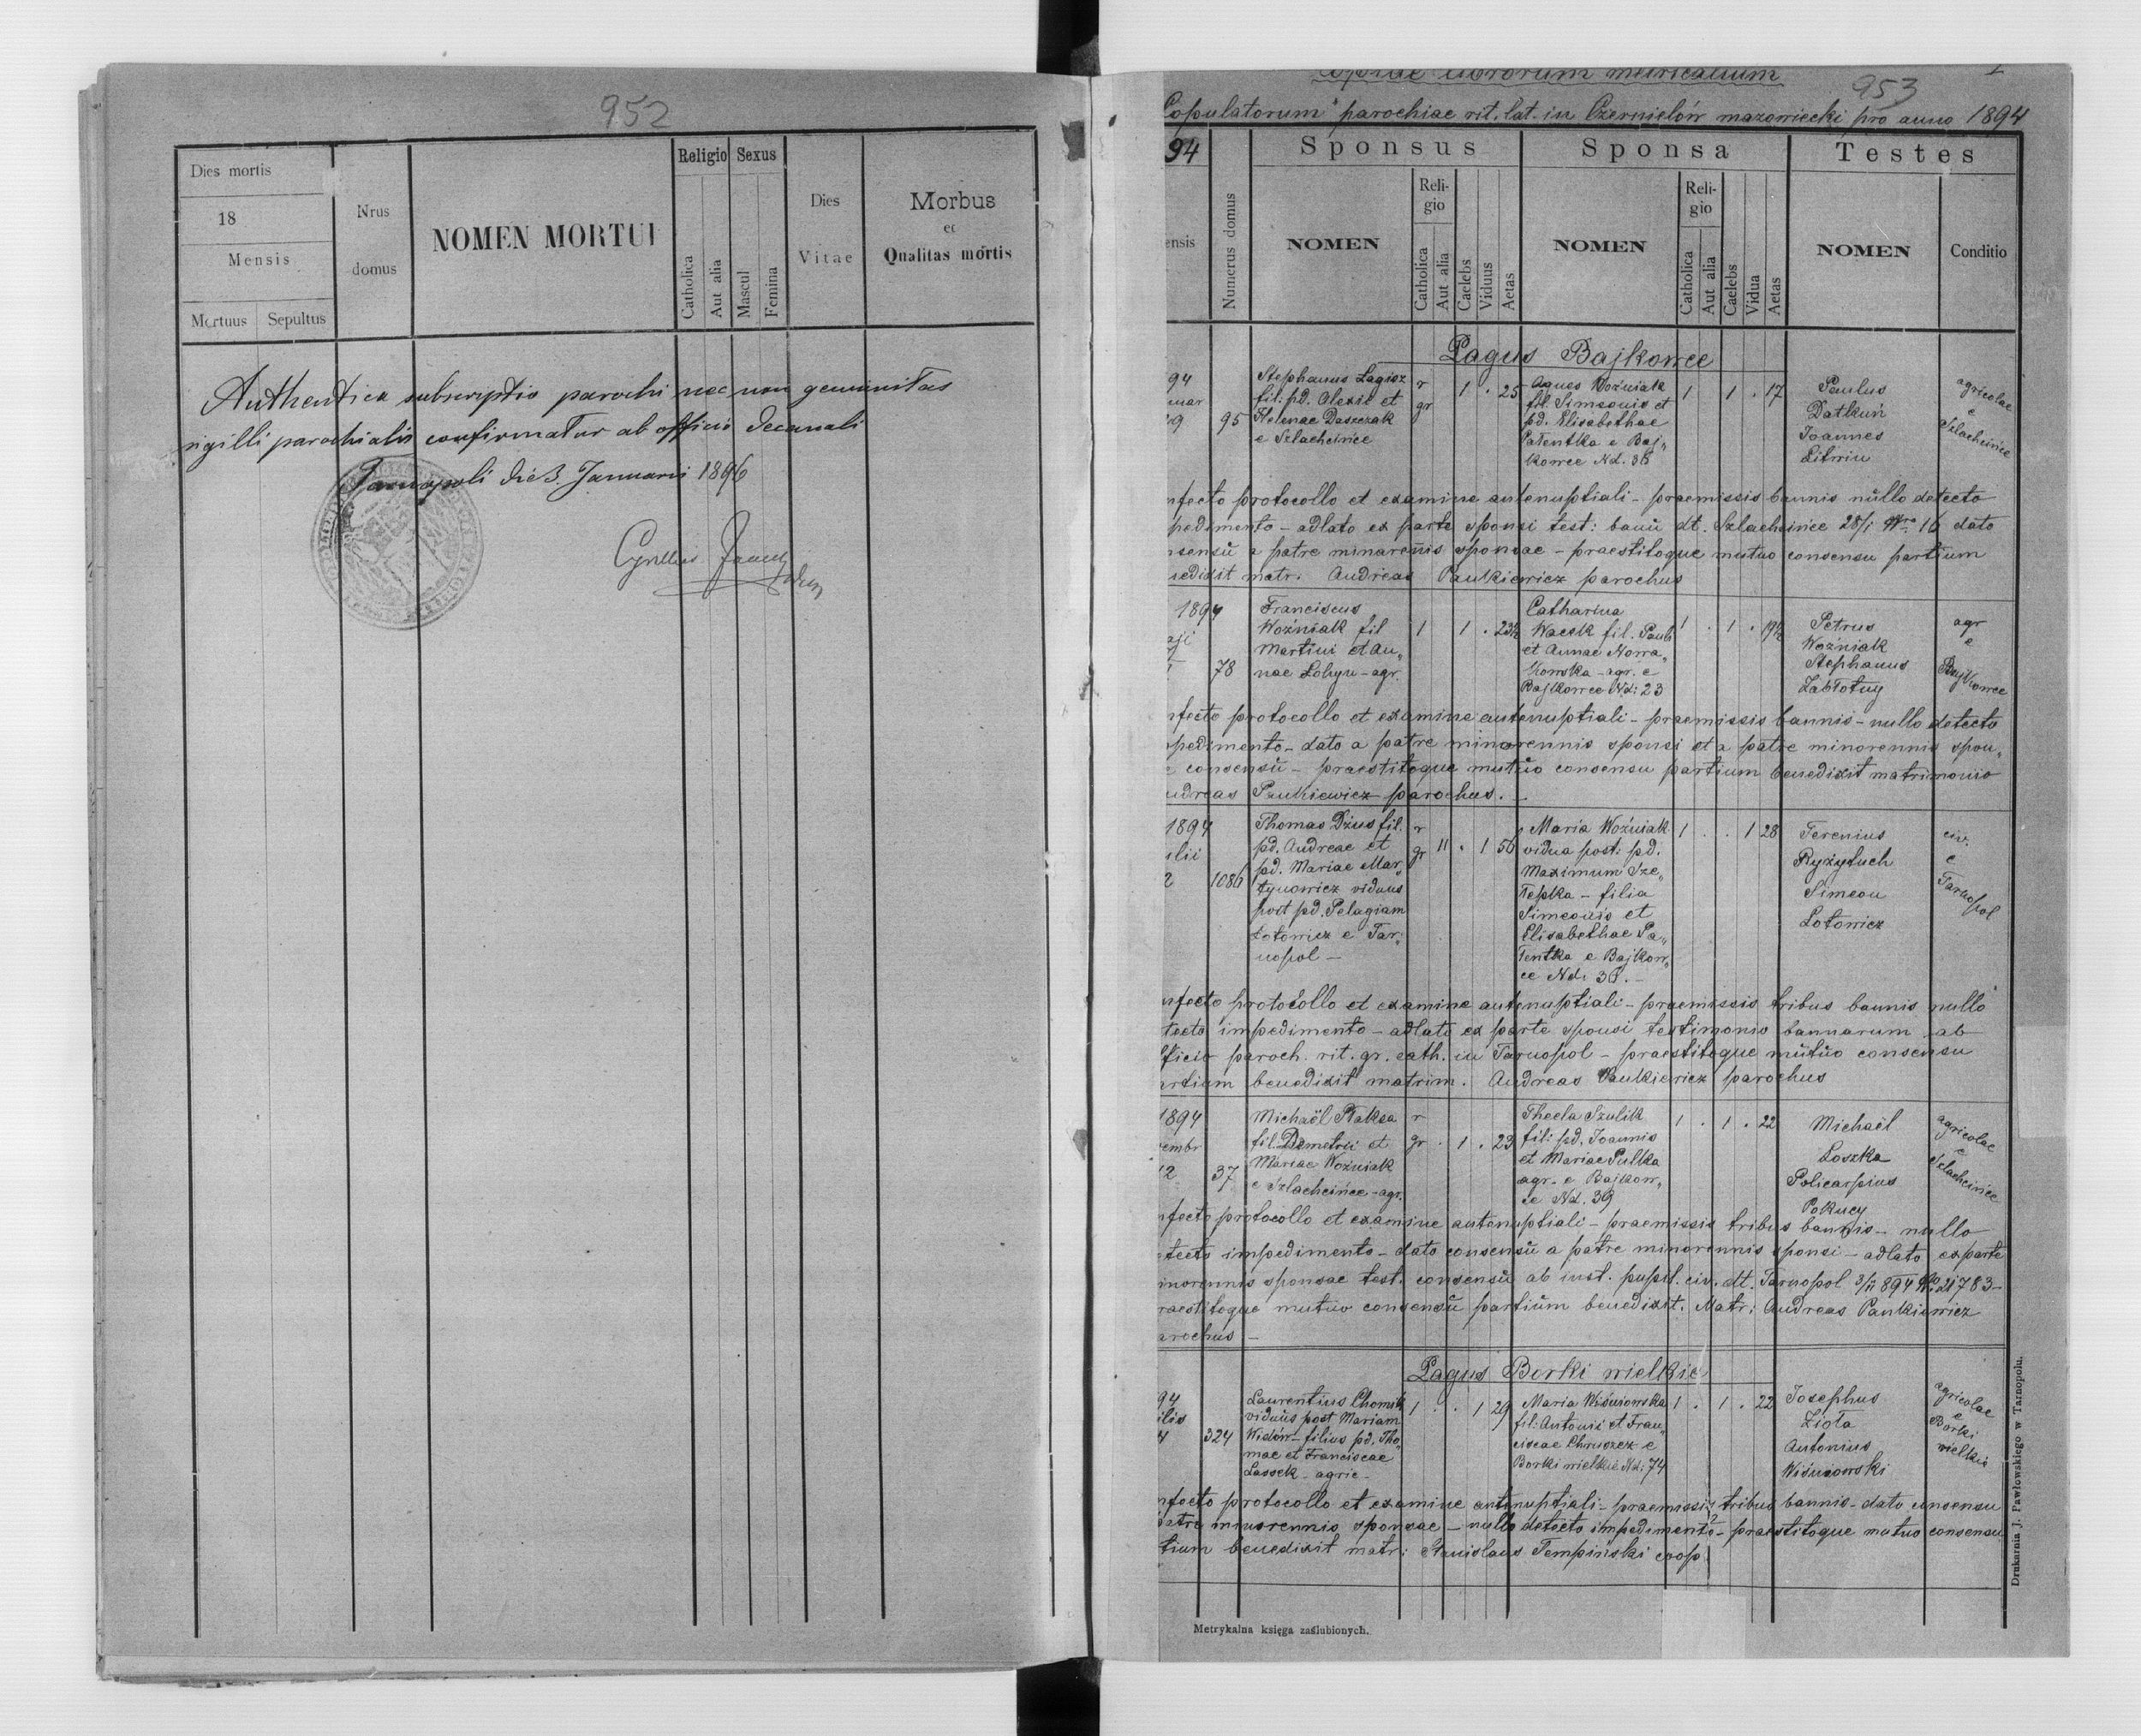 952
Dies mortis
18
Mensis
Mortuus Sepultus
Nrus
domus
NOMEN MORTUI
Religio Sexus
Catholica
Aut alia
Mascul
Femina
Dies
Vitae
Morbus
et
Qualitas mortis
Authentica subscriptio parochi nec non genuinitas
sigilli parochialis confirmatur ab officio decanali
Tarnopoli die 3. Januarii 1896
953
Copiae librorum metricalium
Copulatorum" parochiae rit. lat. in Czernielów mazowiecki pro anno 1894
94
Sponsus Sponsa Testes
ensis
Numerus domus
NOMEN
Reli-
gio
Catholica
Aut alia
Caelebs
Viduus
Aetas
NOMEN
Reli-
gio
Catholica
Aut alia
Caelebs
Vidua
Aetas
NOMEN
Conditio
Pagus Bajkowce
94
uar
29
95
Stephanus Lagisz
fil: pd. Alexii et
Helenae Daszczak
e Szlachcińce
r
gr
1 . 25
Agnes Woźniak
fil. Simeonis et
pd. Elisabethae
Patentka e Baj„
kowce Nd. 36
1 1 . 17
Paulus
Datkuń
Joannes
Litwin
agricolae
e
Szlachcińce
nfecto protocollo et examine antenuptiali - praemissis bannis nullo detecto
pedimento - adlato ex parte sponsi test: bann dt. Szlachcińce 28/1 Nro 16 dato
nsensu a patre minorennis sponsae - praestitoque mutuo consensu partium
nedixit matr. Andreas Pankiewicz parochus
1894
aji
78
Franciscus
Woźniak fil
Martini et An„
nae Lohyn - agr.
1 1 . 23½
Catharina
Wacek fil. Pauli
et Annae Nowa„
kowska - agr. e
Bajkowce Nd: 23
1 . 1 . 19½
Petrus
Woźniak
Stephanus
Zabłotny
agr
e
Bajkowce
nfecto protocollo et examine antenuptiali - praemissis bannis - nullo detecto
pedimento - dato a patre minorennis sponsi et a patre minorennis spon„
e consensu - praestitoque mutuo consensu partium benedixit matrimonio
ndreas Pankiewicz parochus.
1894
ulii
2
1086
Thomas Dżus fil.
pd. Andreae et
pd. Mariae Mar„
tynowicz viduus
post pd. Pelagiam
Łotowicz e Tar„
nopol -
r
gr 11 . 1 56
Maria Woźniak
vidua post: pd.
Maximum Sze„
łepka - filia
Simeonis et
Elisabethae Pa„
tentka e Bajkow„
ce Nd. 36. -
1 . . 1 28
Terenius
Ryżytuch
Simeon
Łotowicz
civ.
e
Tarnopol
nfecto protocollo et examine antenuptiali - praemissis tribus bannis nullo
tecto impedimento - adlato ex parte sponsi testimonio bannarum ab
fficio paroch. rit. gr. cath. in Tarnopol - praestitoque mutuo consensu
artium benedixit matrim. Andreas Pankiewicz parochus
1894
embr
12
37
Michaël Płaksa
fil. Demetrii et
Mariae Woźniak
e Szlachcińce - agr.
r
gr . 1 . 23
Thecla Szulik
fil: pd. Joannis
et Mariae Pulka
agr. e Bajkow„
ce Nd. 39
1 . 1 . 22
Michaël
Łoszka
Policarpius
Pokucy
agricolae
e
Szlachcińce
nfecto protocollo et examine antenuptiali - praemissis tribus bannis - nullo
tecto impedimento - dato consensu a patre minorennis sponsi - adlato ex parte
inorennis sponsae test. consensu ab inst. pupil. civ. dt. Tarnopol 3/11 894 Nro 21783 -
raestitoque mutuo consensu partium benedixit. Matr: Andreas Pankiewicz
arochus -
Pagus Borki wielkie
94
ilis
4
324
Laurentius Chomik
viduus post Mariam
Widów - filius pd. Tho„
mae et Franciscae
Lassek - agric -
1 . . 1 29
Maria Wiśniowska
fil: Antonii et Fran„
ciscae Chruszcz e
Borki wielkie Nd: 74
1 . 1 . 22
Josephus
Zioła
Antonius
Wiśniowski
agricolae
e
Borki
wielkie
nfecto protocollo et examine antenuptiali - praemissis tribus bannis - dato consensu
patre minorennis sponsae - nullo detecto impedimento - praestitoque mutuo consensu
tium benedixit matr: Stanislaus Tempiński coop.
Metrykalna księga zaślubionych.
Drukarnia J. Pawłowskiego w Tarnopolu.